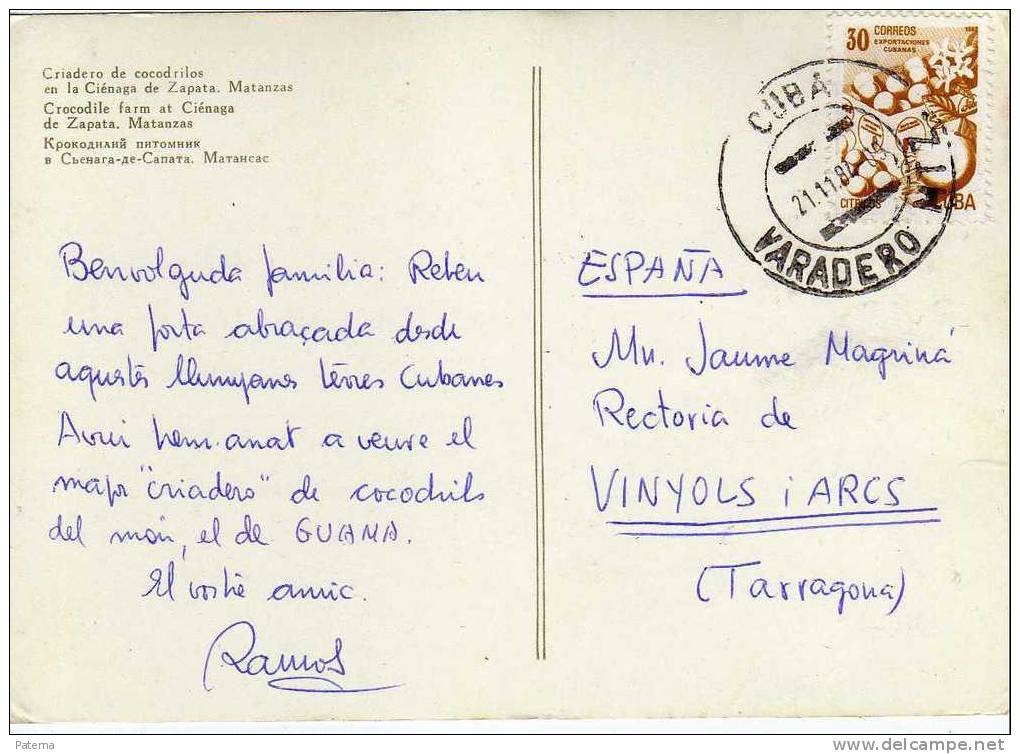 Criadero de cocodrilos
en la Ciénaga de Zapata. Matanzas
Crocodile farm at Ciénaga
de Zapata. Matanzas
Крокодилий питомник
в Сьенага-де-Сапата. Матансас
Benvolguda família: Rebeu
una forta abraçada desde
aquestes llunyanes terres Cubanes
Avui hem anat a veure el
major "criadero" de cocodrils
del món, el de GUAMA.
El vostre amic.
Ramos
30 CORREOS
EXPORTACIONES
CUBANAS
1982
CITRICOS
CUBA
CUBA
21.11.82
MTZ
VARADERO
ESPAÑA
Mn. Jaume Magriná
Rectoria de
VINYOLS i ARCS
(Tarragona)
Paterna
www.delcampe.net